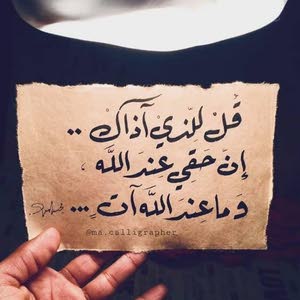 قُلْ للّذيْ آذاكْ ..
إنّ حَقي عندَ اللَّه ،
وَما عِندَ اللَّه آتٍ ...
@ma.calligrapher